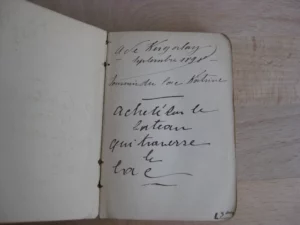 A de Kergorlay
Septembre 189
Souvenir du lac
acheté sur le
bateau
qui traverse
le
lac